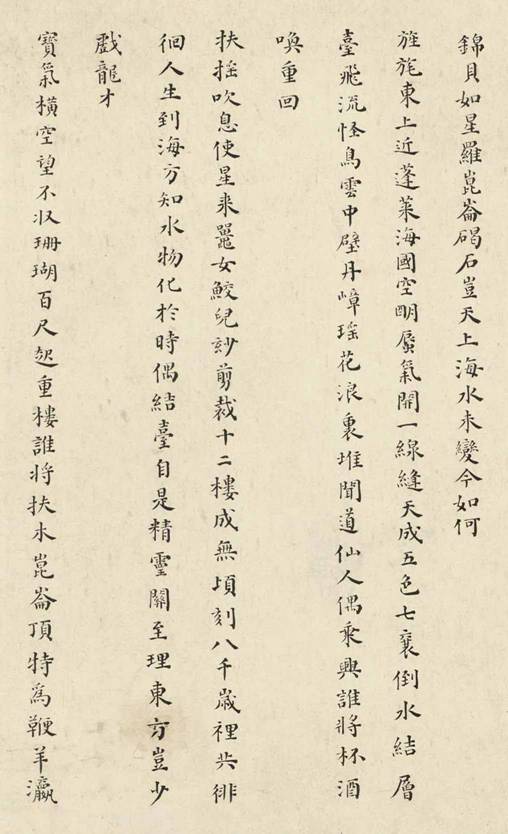 錦貝如星羅崑崙碣石豈天上海水未變今如何
旌旄東上近蓬萊海國空朙蜃氣開一線縫天成五色七襄倒水結層
臺飛流怪鳥雲中壁丹嶂瑶花浪裏堆聞道仙人偶乘興誰將杯酒
喚重回
扶摇吹息使星来鼉女鮫兒玅剪裁十二樓成無頃刻八千歲裡共徘
徊人生到海方知水物化於時偶結臺自是精靈關至理東方豈少
戲龍才
寶氣橫空望不收珊瑚百尺起重樓誰将扶木崑崙頂特為鞭羊瀛